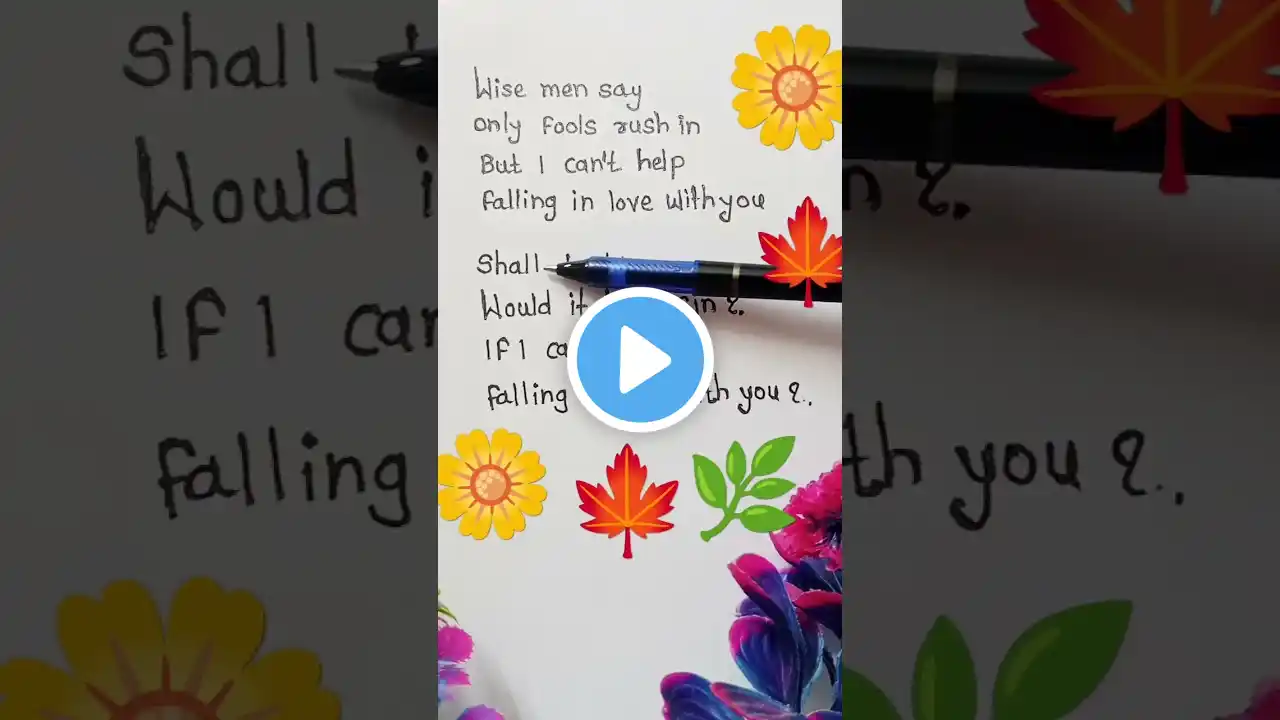 Wise men say
only fools rush in
But I can't help
falling in love with you
Shall
Would it in ?.
If I ca
falling th you ?.